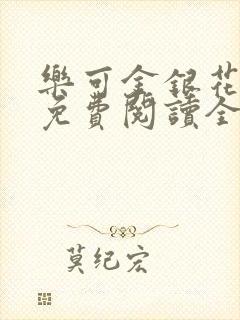 樂可金銀花
免費閱讀全
莫纪宏